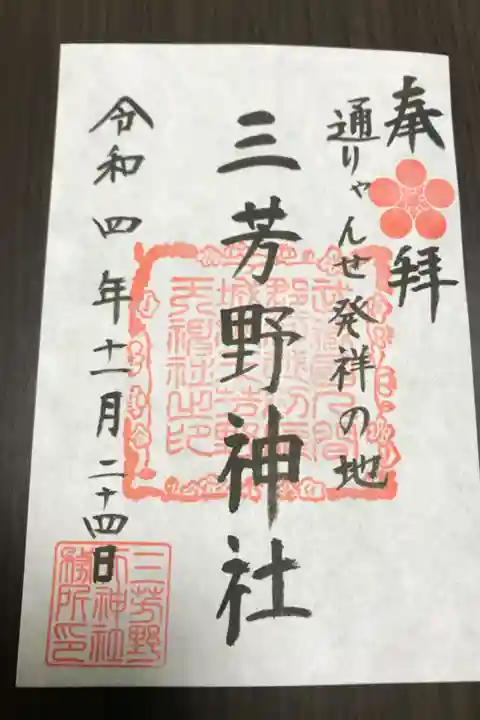 奉拝
通りゃんせ発祥の地
三芳野神社
令和四年十一月二十四日
三芳野
神社
務所印